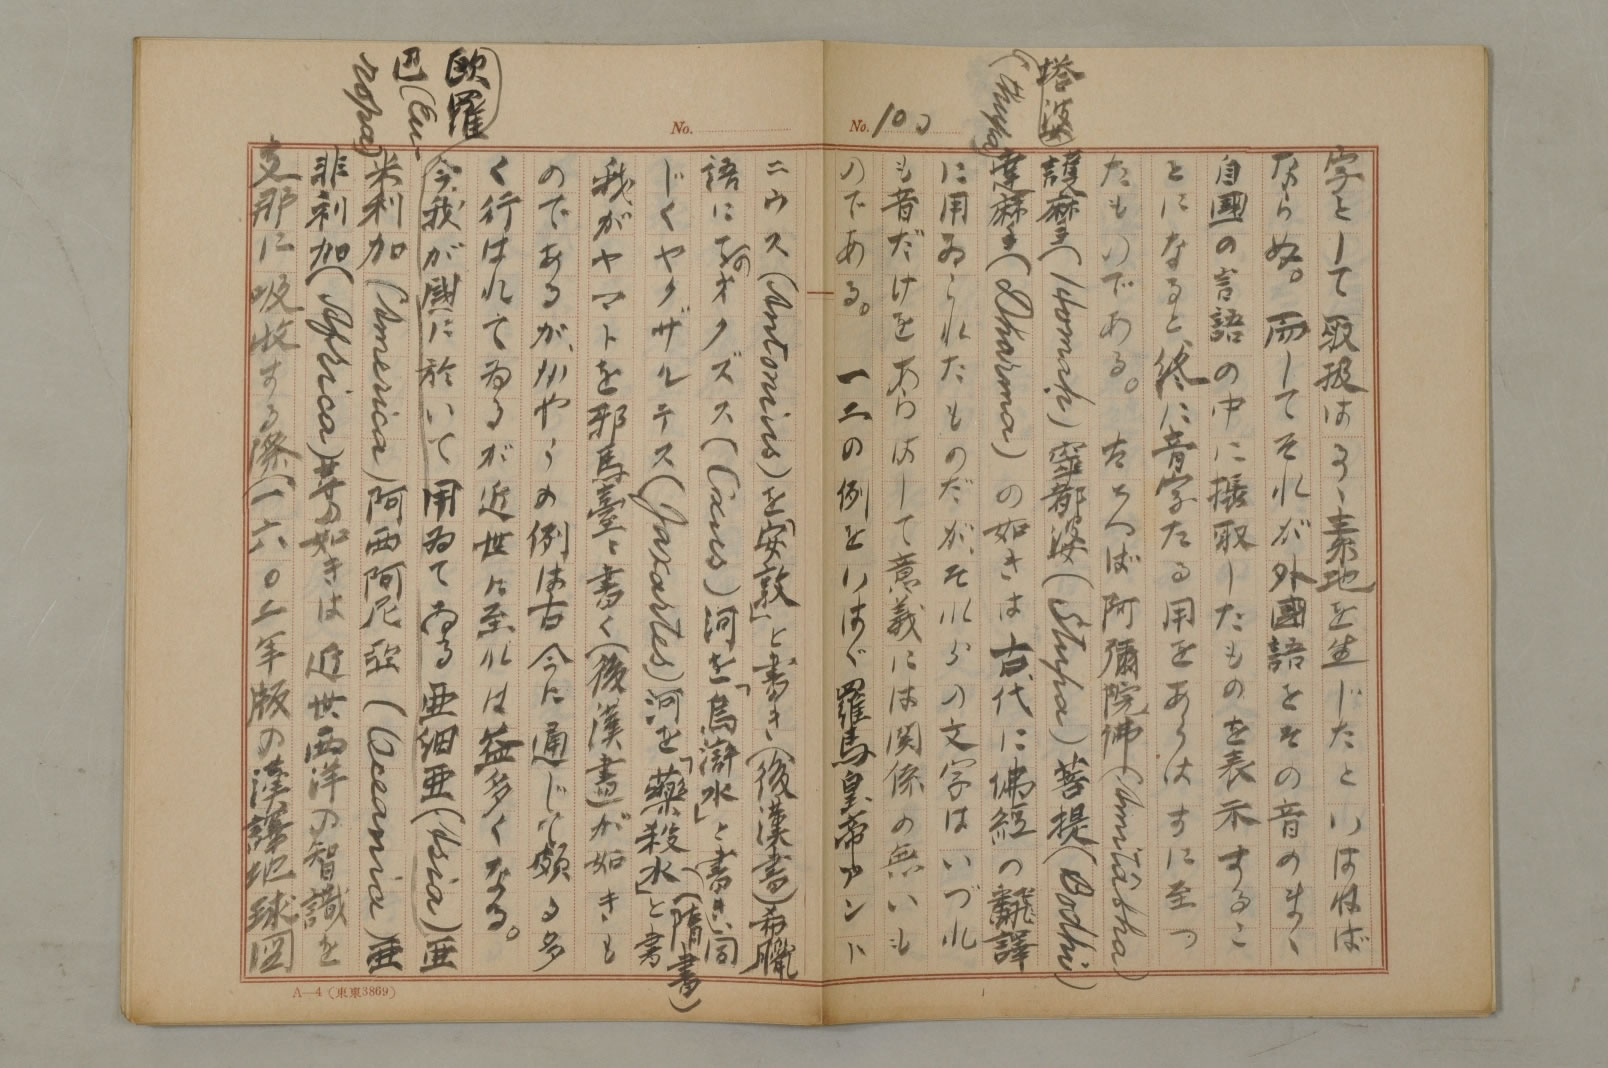 No. 100
字として取扱はるゝ素地を生じたといはねば
ならぬ。而してそれが外國語をその音のまゝ
自國の言語の中に攝取したものを表示するこ
とになると、終に音字たる用をあらはすに至つ
たものである。たとへば阿彌陀佛(Amitābha)
塔婆(thupa)
護摩(Homah)窣都婆(Stupa)菩提(Bodhi)
達摩(Dharma)の如きは古代に佛經の飜譯
に用ゐられたものだが、それらの文字はいづれ
も音だけをあらはして意義には関係の無いも
のである。一二の例をいはゞ羅馬皇帝アント
No.
ニウス(Antonius)を「安敦」と書き(後漢書)希臘
語にてのオクズス(Oxus)河を「烏滸水」と書き、同
じくヤクザルテス(Jaxartes)河を「藥殺水」と書
(隋書)
我がヤマトを邪馬臺と書く(後漢書)が如きも
のであるが、かやうの例は古今に通じて頗る多
く行はれてゐるが近世に至れは益多くなる。
歐羅巴(Europa)
今我が國に於いて用ゐてゐる亜細亜(Asia)亜
米利加(America)阿西阿尼亞(Oceania)亜
非利加(Africa)等の如きは近世西洋の智識を
支那に吸收する際(一六〇二年版の漢譯地球図
A—4(東東3869)